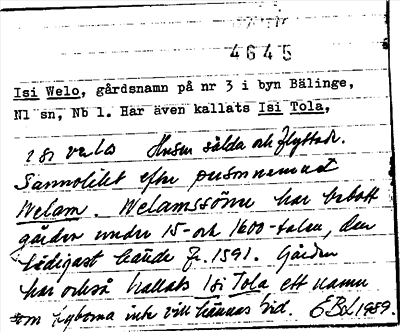 4645
Isi Welo, gårdsnamn på nr 3 i byn Bälinge,
Nl sn, Nb 1. Har även kallats Isi Tola,
Husen sålda och flyttade.
Sannolikt efter personnamnet
Welam. Welamssöner har bebott
gården under 15- och 1600-talen, den
tidigast kände fr. 1591. Gården
har också kallats Isi Tola ett namn
som byborna inte vill kännas vid. EBL 1989.